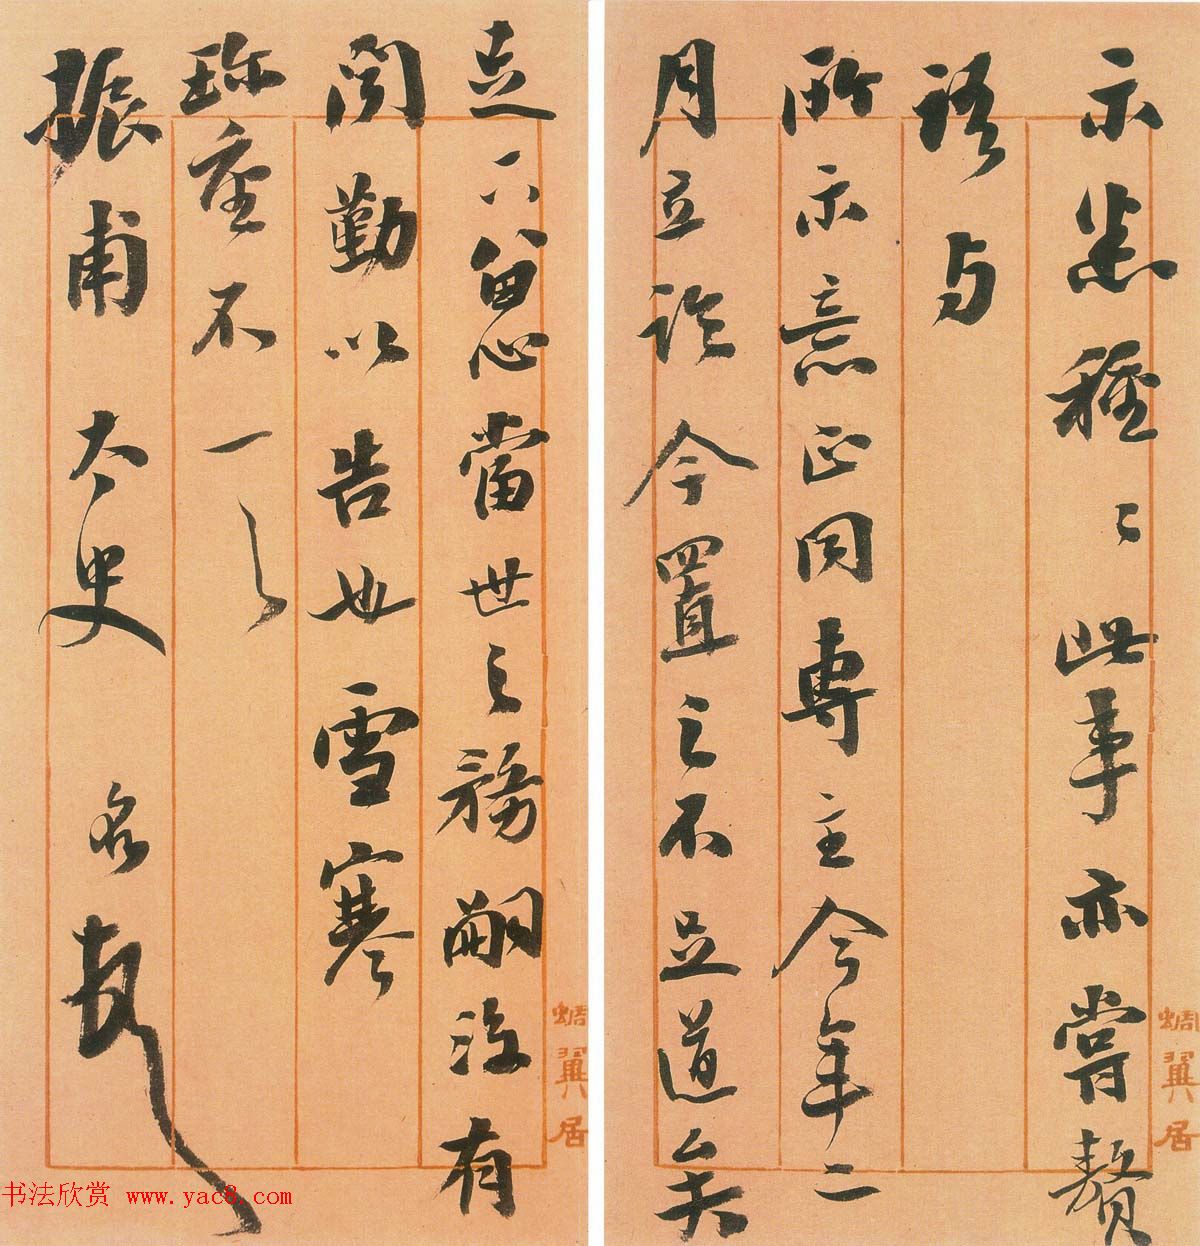 示悉種〻此事亦嘗贅
語与
所示意正同專主今年二
月立論今置之不足道矣
留心當世之務嗣後有
聞勤以告也雪寒
珍重不一〻
振甫太史 名
蜩翼居
蜩翼居
书法欣赏 www.yac8.com